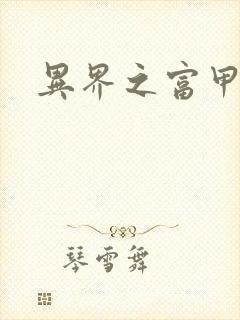 異界之富甲
琴雪舞